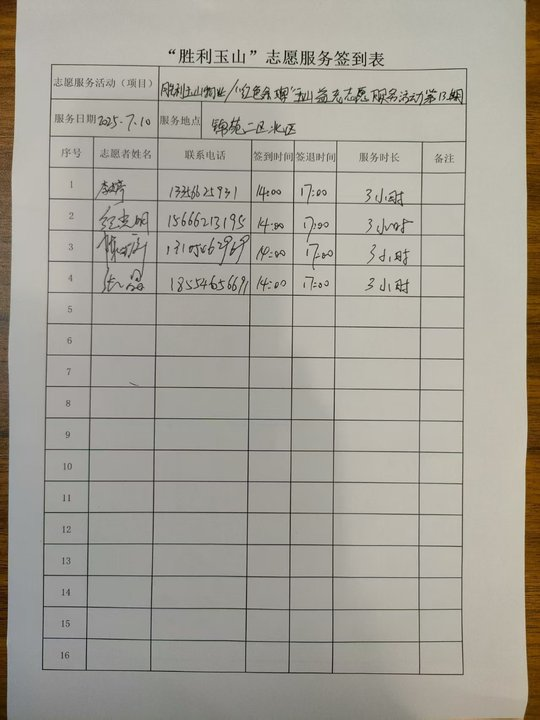 “胜利玉山”志愿服务签到表
志愿服务活动（项目） 胜利玉山物业/“红色 玉山益志愿服务活动第13期
服务日期 2025.7.10 服务地点 锦苑二区北区
序号 志愿者姓名 联系电话 签到时间 签退时间 服务时长 备注
1 李婷 13356625931 14:00 17:00 3小时
2 15666213195 14:00 17:00 3小时
3 13105462969 14:00 17:00 3小时
4 18554656691 14:00 17:00 3小时
5
6
7
8
9
10
11
12
13
14
15
16